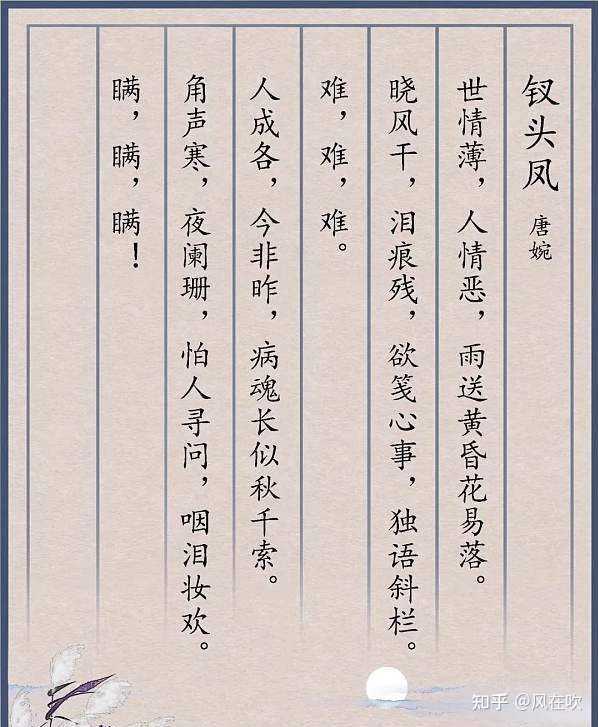 钗头凤 唐婉
世情薄，人情恶，雨送黄昏花易落。
晓风干，泪痕残，欲笺心事，独语斜栏。
难，难，难。
人成各，今非昨，病魂长似秋千索。
角声寒，夜阑珊，怕人寻问，咽泪妆欢。
瞒，瞒，瞒！
知乎 @风在吹